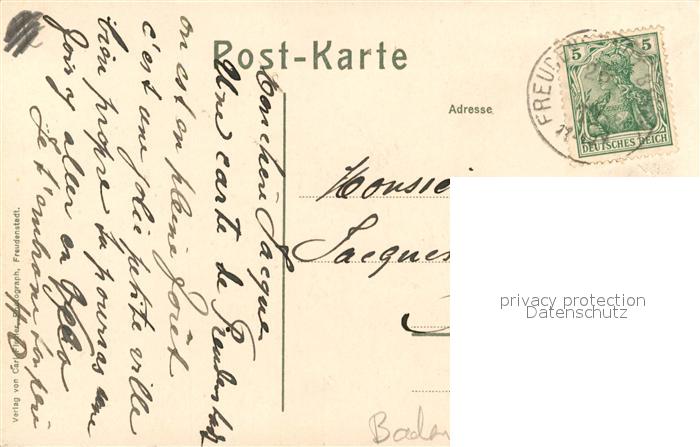 Post-Karte
Adresse
5 5
DEUTSCHES REICH
FREUD
Mon cher Jacque
Une carte de Freudenstadt
on est en pleine forêt
c'est une jolie petite ville
bien propre tu pourras une
fois y aller en
Je t'embrasse ton père
Monsie
Jacques
Baden
privacy protection
Datenschutz
Verlag von Carl Photograph, Freudenstedt.